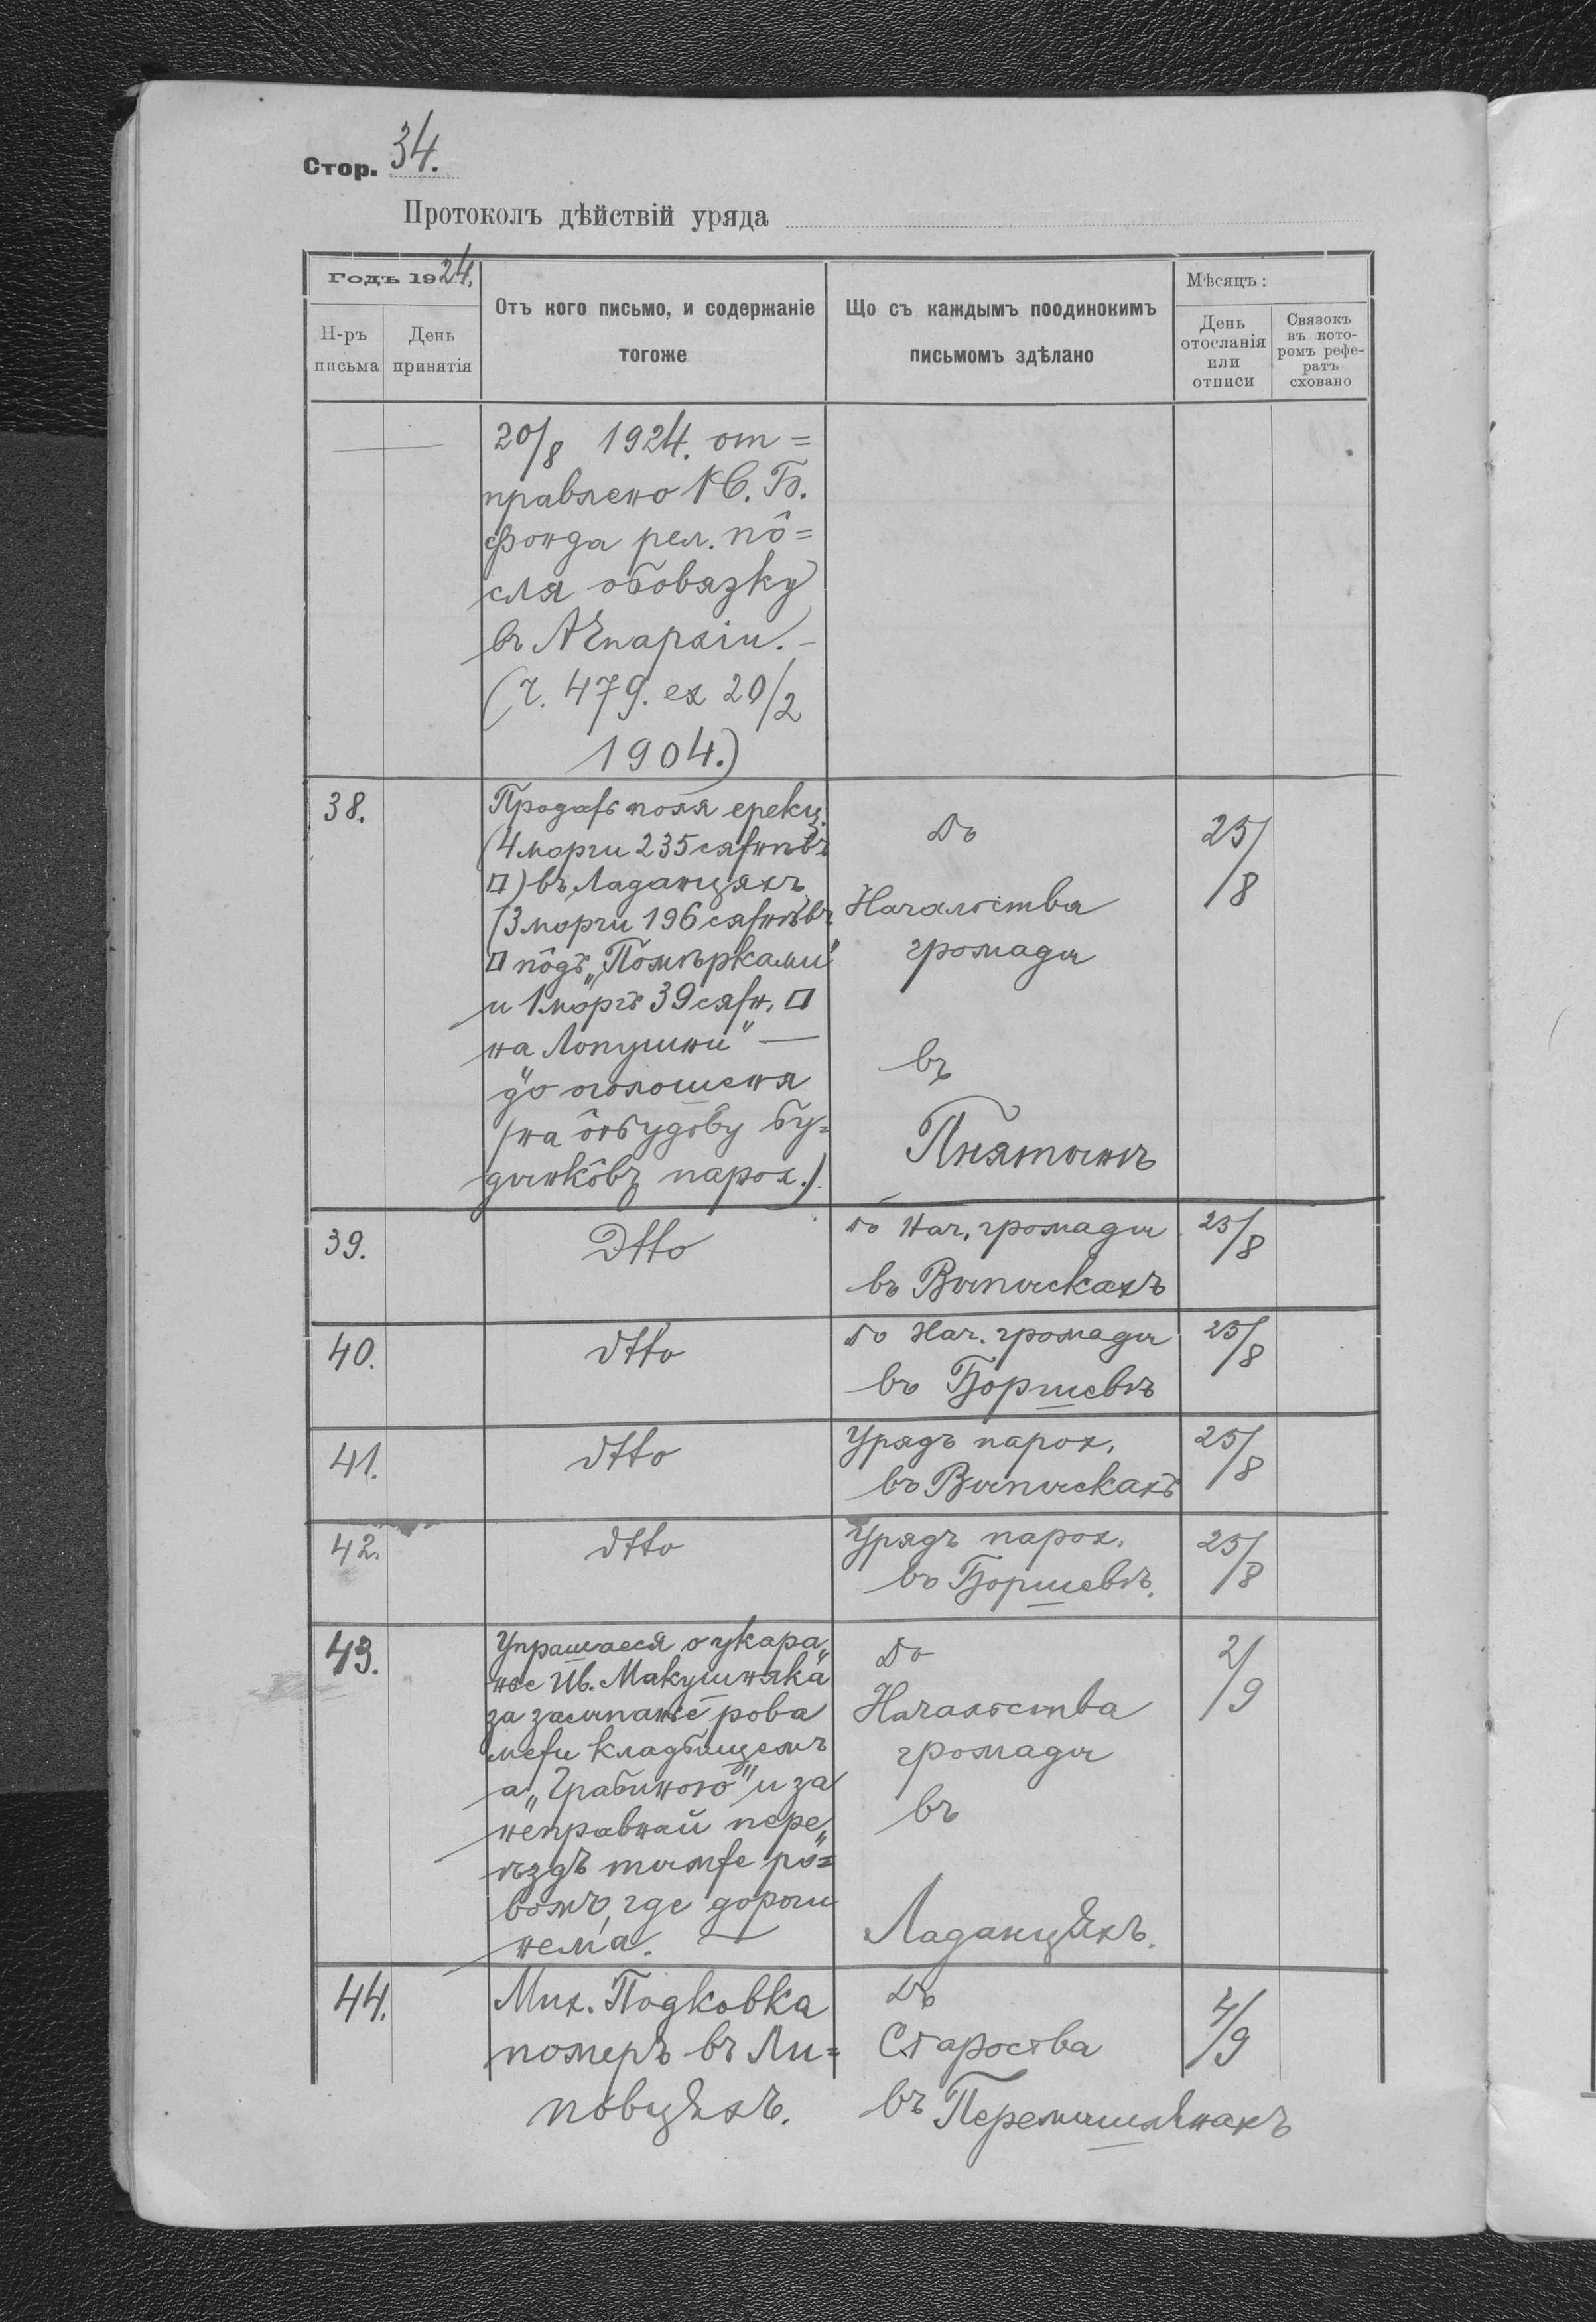 Стор. 34.
Протоколъ дѣйствій уряда
Годъ 1924.
Н-ръ письма
День принятія
Отъ кого письмо, и содержаніе тогоже
Що съ каждымъ поодинокимъ письмомъ здѣлано
Мѣсяцъ:
День отосланія или отписи
Связокъ въ которомъ рефератъ сховано
20/8 1924. от=
правлено
фонда рел. пô=
сля обовязку
въ АЕпархіи. –
(ч. 479. ex 20/2
1904.)
38.
Продажь поля ерекц.
(4 морги 235 сяжнѣвъ
□) въ Ладанцяхъ
(3 морги 196 сяжнѣвъ
□ пôдъ „Помѣрками"
и 1 моргъ 39 сяжн. □
на Лопушни" —
до оголошеня
(на ôдбудову бу=
дынкôвъ парох.)
До
Начальства
громады
въ
Пнятынѣ
25/8
39.
Dtto
до Нач. громады
въ Выпыскахъ
25/8
40.
dtto
до Нач. громады
въ Боршевѣ
25/8
41.
dtto
Урядъ парох.
въ Выпыскахъ
25/8
42.
dtto
Урядъ парох.
въ Боршевѣ.
25/8
43.
Упрашаеся о укара„
нье Ив. Макушняка
за засыпанье рова
межи кладбищемъ
а „Грабиною" и за
неправный пере„
ѣздъ тымже ро=
вомъ, где дороги
нема. —
До
Начальства
громады
въ
Ладанцяхъ.
2/9
44.
Мих. Подковка
померъ въ Ли=
повцяхъ.
До
Староства
въ Перемышлянахъ
4/9